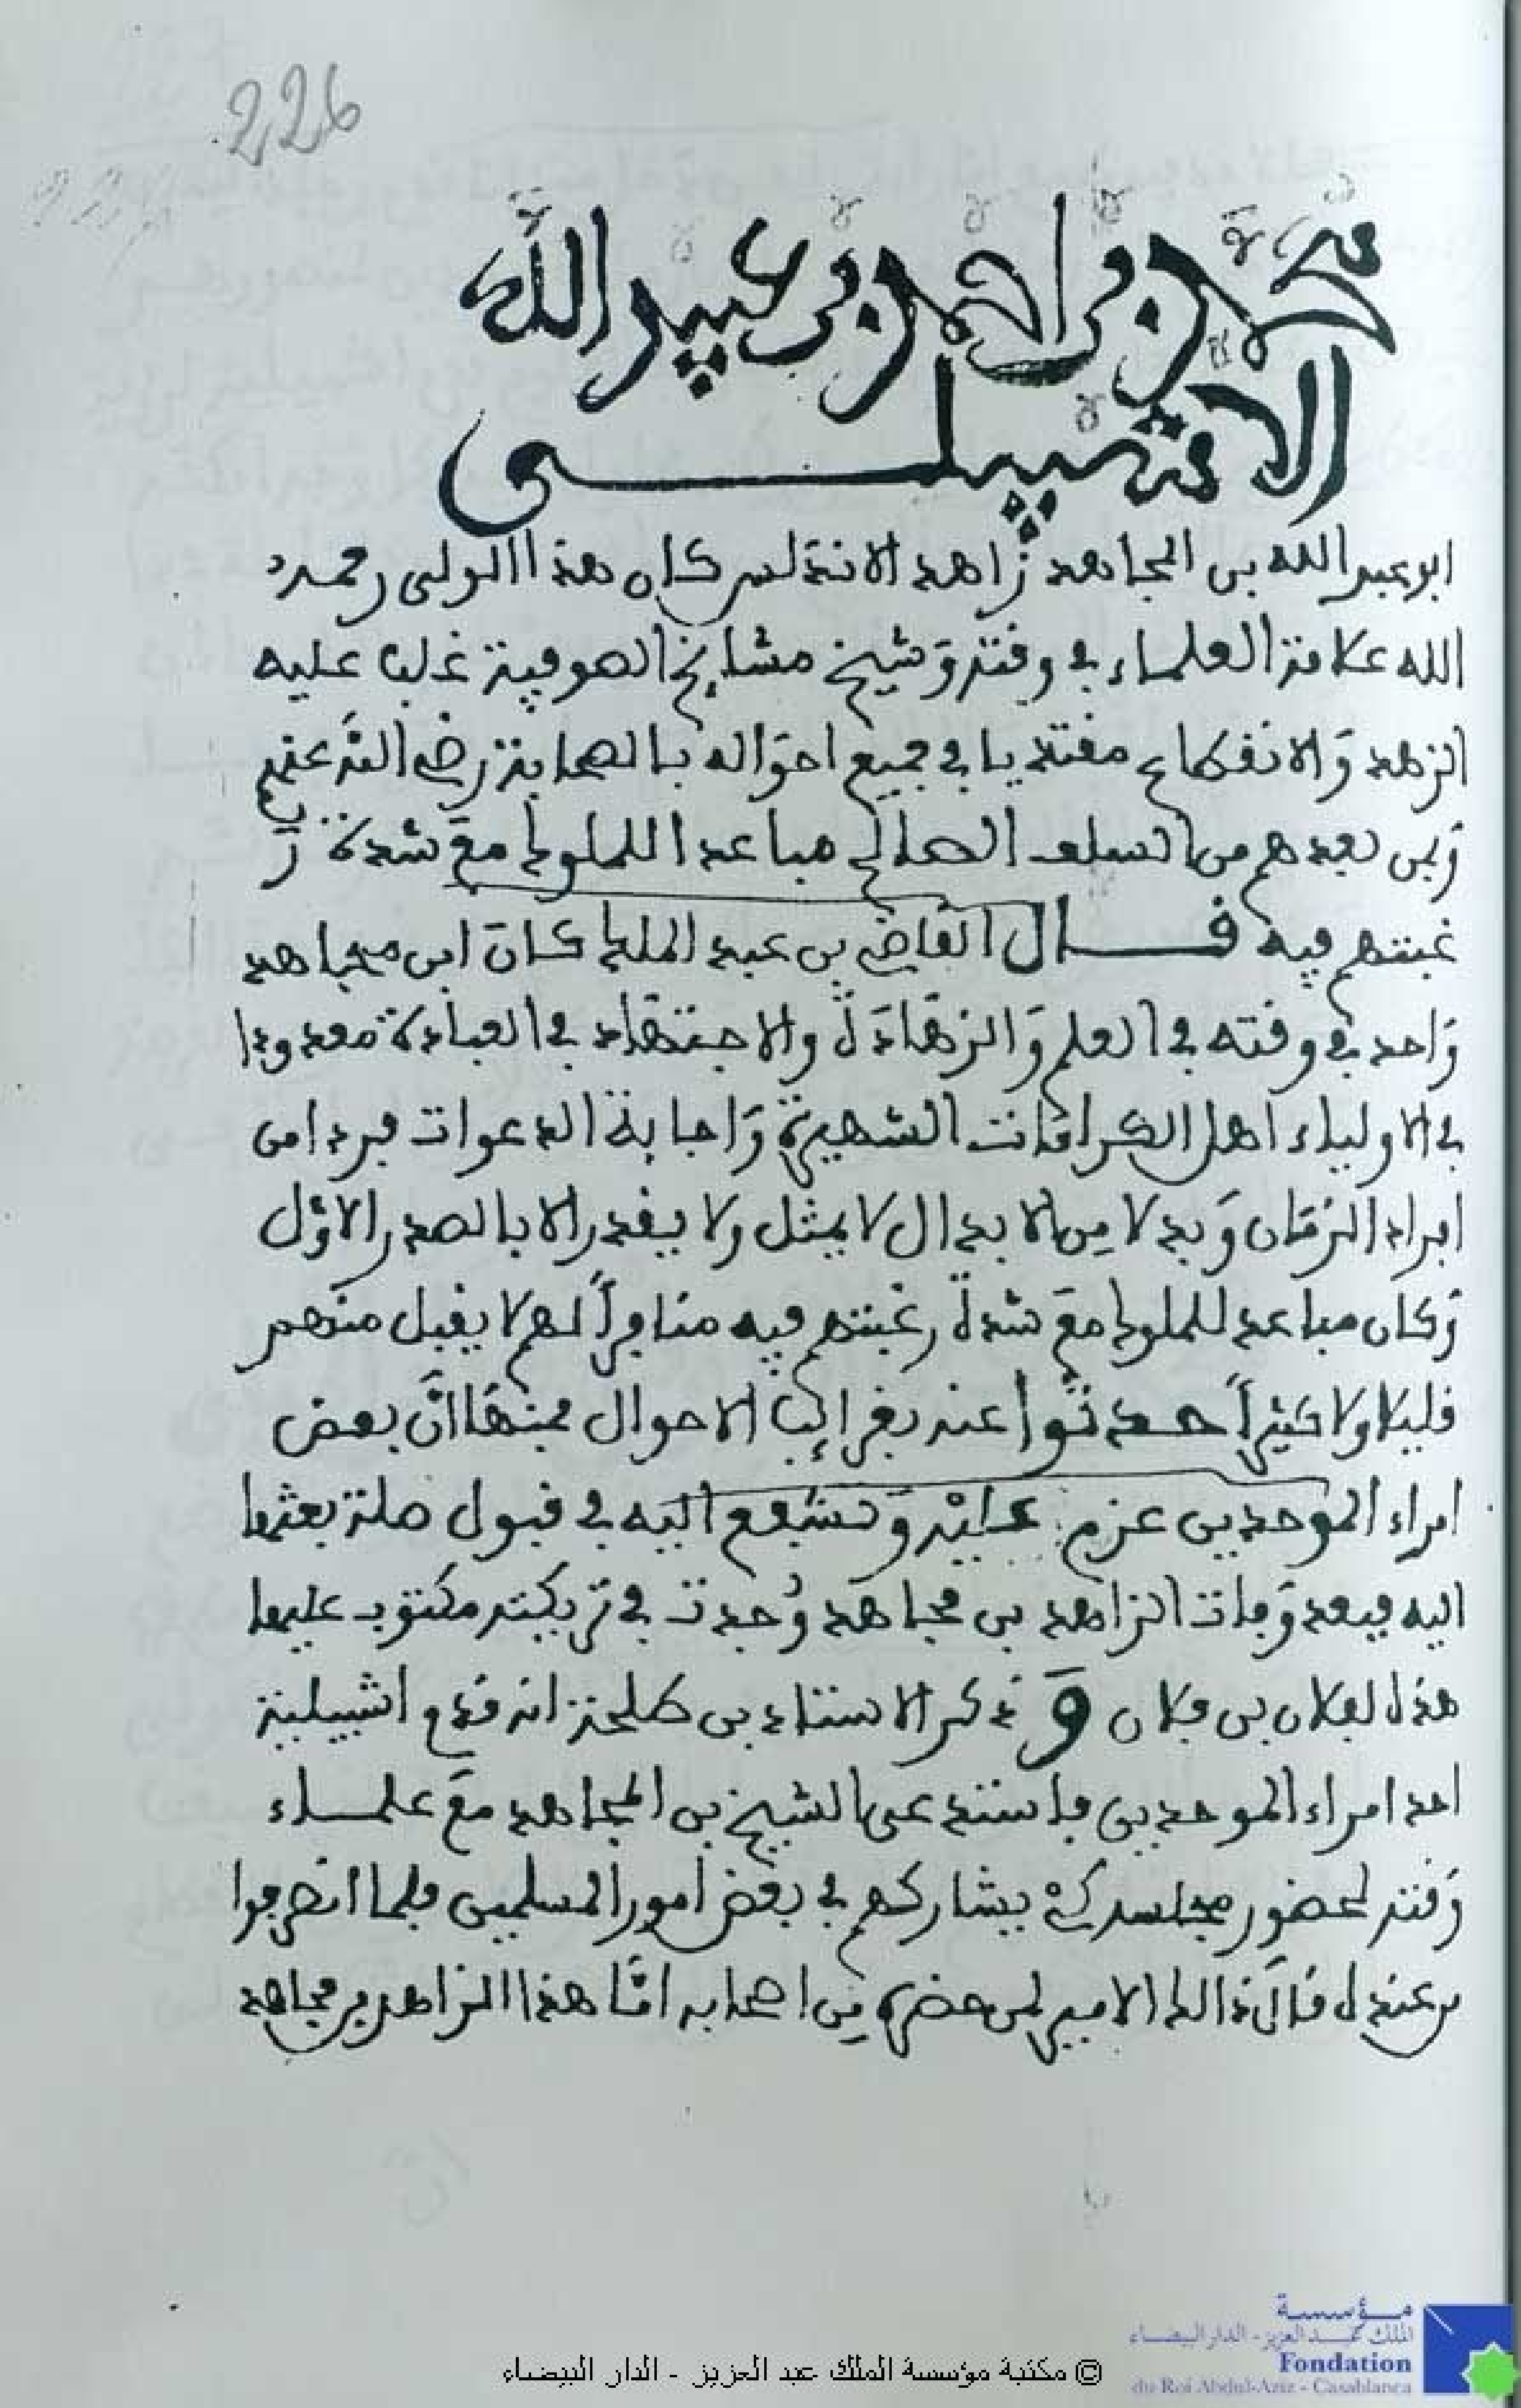 226
محمد بن احمد بن عبيد الله
الاشبيلي
ابو عبد الله بن المجاهد زاهد الاندلس كان هذا الولي رحمه
الله علامة العلماء في وقته وشيخ مشايخ الصوفية غلب عليه
الزهد والانقطاع مقتديا في جميع احواله بالصحابة رضي الله عنهم
وبمن بعدهم من السلف الصالح مباعدا للملوك مع شدة ر
غبتهم فيه قال القاضي بن عبد الملك كان ابن مجاهد
واحد في وقته في العلم والزهادة والاجتهاد في العبادة معدودا
في الاولياء اهل الكرامات الشهيرة واجابة الدعوات فردا من
افراد الزمان وبدلا من الابدال لا يمثل ولا يقدر الا بالصدر الاول
وكان مباعد للملوك مع شدة رغبتهم فيه منافرا لهم لا يقبل منهم
قليلا ولا كثيرا حدثوا عنه بغرائب الاحوال فمنها ان بعض
امراء الموحدين عزم عليه وتشفع اليه في قبول صلة بعثها
اليه فبعد وفات الزاهد بن مجاهد وجدت في تركته مكتوب عليها
هذا لفلان بن فلان وذكر الاستاذ بن طلحة انه قدم اشبيلية
احد امراء الموحدين فاستدعى الشيخ بن المجاهد مع علماء
وقته لحضور مجلسه كي يشاركهم في بعض امور المسلمين فلما انصرفوا
من عنده قال ذالك الامير لمن حضره من اصحابه اما هذا الزاهد بن مجاهد
مؤسسة
الملك عبد العزيز - الدار البيضاء
Fondation
du Roi Abdul-Aziz - Casablanca
© مكتبة مؤسسة الملك عبد العزيز - الدار البيضاء